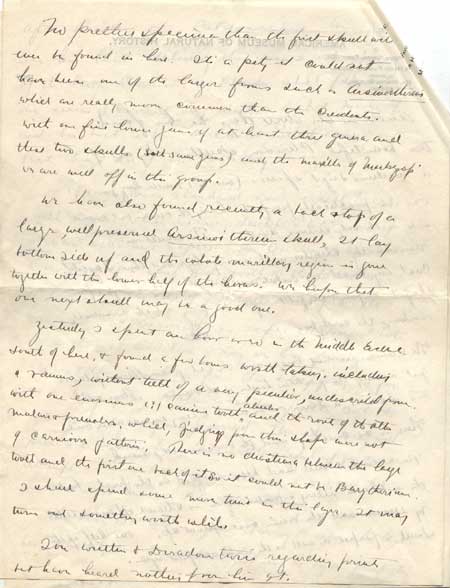 No prettier specimen than the first skull will
ever be found in here. It is a pity it could not
have been one of the larger forms such as Arsinoitherium
which are really more common than the Creodonts.
With our fine lower jaws of at least three genera and
these two skulls (both same genus) and the maxilla of
we are well off in this group.
We have also found recently a back & top of a
large, well preserved Arsinoitherium skull, It lay
bottom side up and the whole maxillary region is gone
together with the lower half of the horns. We hope that
our next skull may be a good one.
Yesterday I spent an hour or so in the Middle Eocene
south of here, & found a few bones worth taking, including
a ramus, without teeth of a very peculiar, undescribed form
with one enormous (?) canine tooth and the roots of the other
molars & premolars, which, judging from their shape were not
of carnivore pattern. There is no diastema between the large
tooth and the first one back of it so it could not be Barytherium.
I shall spend some more time in this layer. It may
turn out something worth while.
I've written to regarding
but have heard nothing from him yet.
AMERICAN MUSEUM OF NATURAL HISTORY.